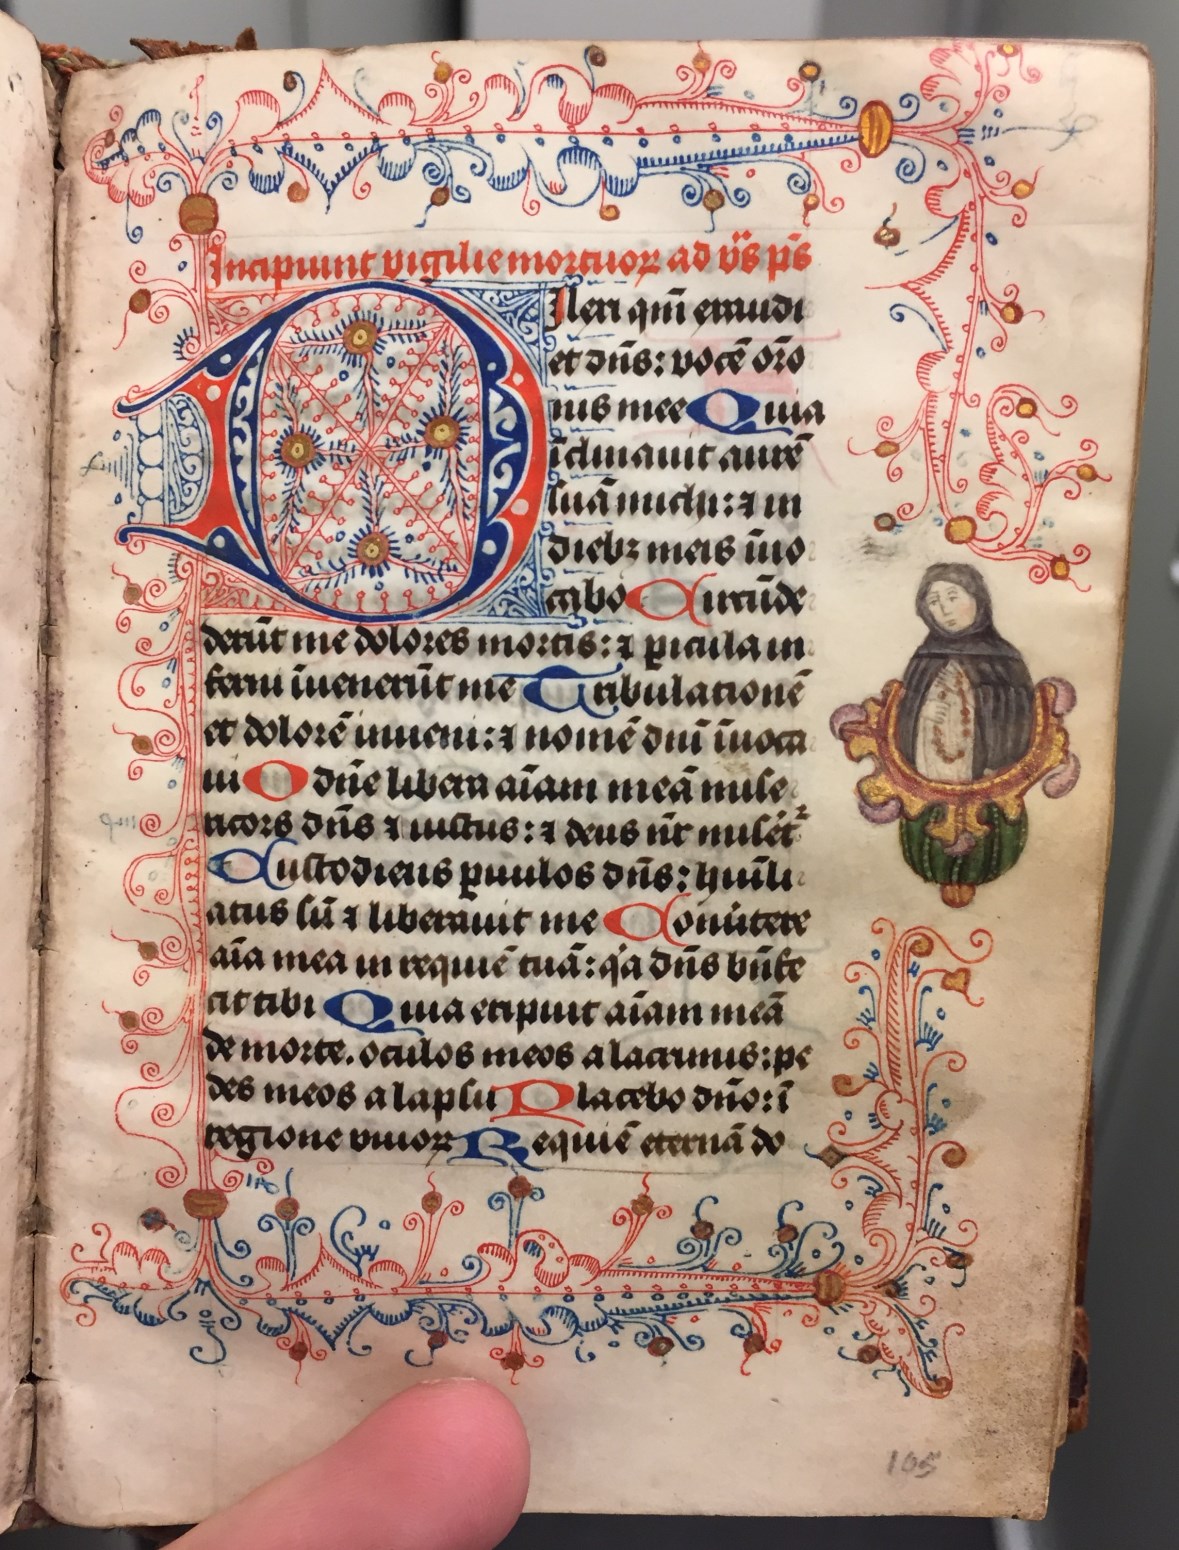 Incipiunt vigilie mortuorꝝ ad vīīs ps̄
DIlexi qm̄ exaudi
et dn̄s: vocē or̄o
nis mee Quia
īclinauit aurē
suā michi: ⁊ in
diebꝫ meis īuo
cabo Circūde
derūt me dolores mortis: ⁊ ꝑicula in
ferni īuenerūt me Tribulationē
et dolorē inueni: ⁊ nomē dn̄i īuoca
ui O dn̄e libera aīam meā mise
ricors dn̄s ⁊ iustus: ⁊ deus nr̄ miset̄ꝛ
Custodiens ꝑuulos dn̄s: hūili
atus sū ⁊ liberauit me Conūtere
aīa mea in requiē tuā: qͣa dn̄s bn̄fe
cit tibi Quia eripuit aīam meā
de morte. oculos meos a lacrimis: pe
des meos a lapsu Placebo dn̄o: ī
regione viuoꝝ Requiē eternā do
105